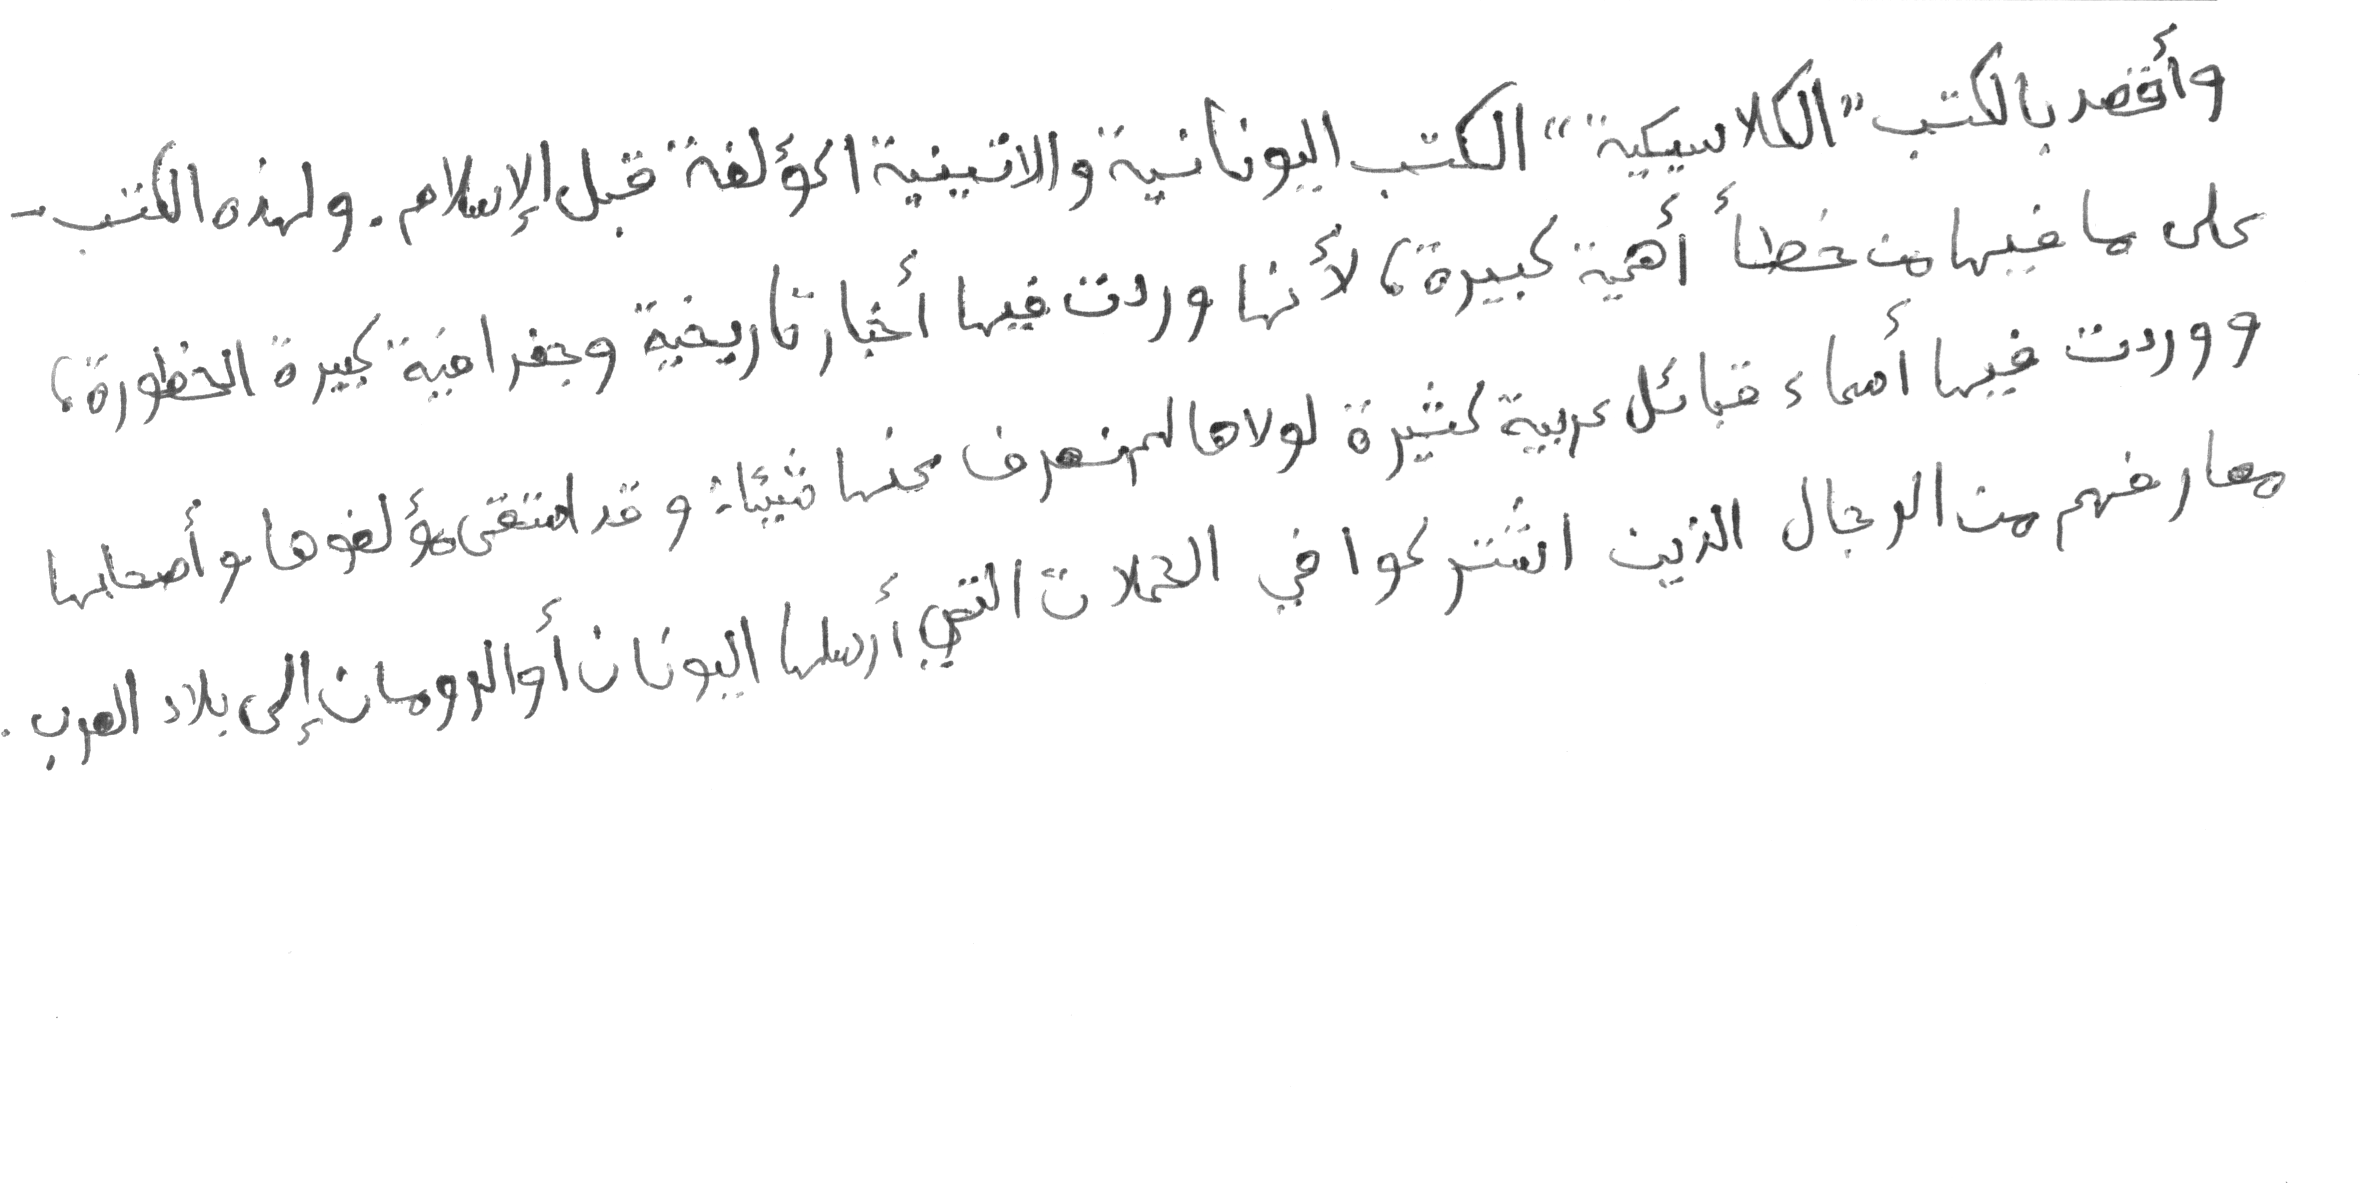 وأقصد بالكتب "الكلاسيكية" الكتب اليونانية والاتينية المؤلفة قبل الإسلام. ولهذه الكتب -
على ما فيها من خطأ أهمية كبيرة؛ لأنها وردت فيها أخبار تاريخية وجغرافية كبيرة الخظورة؛
ووردت فيها أسماء قبائل عربية كثيرة لولاها لم نعرف عنها شيئا: وقد استقى مؤلفوها وأصحابها
معارفهم من الرجال الذين اشتركوا في الحملات التي أرسلها اليونان أو الرومان إلى بلاد العرب.